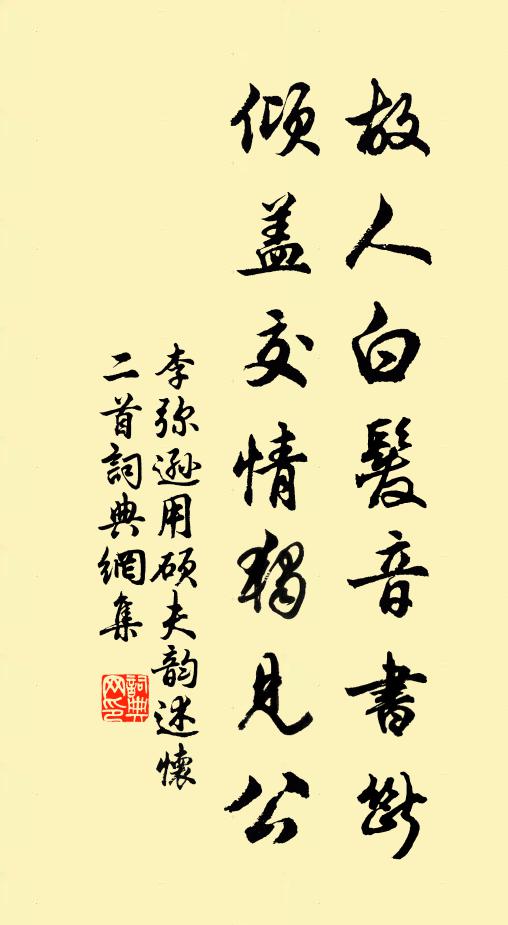 故人白髮音書斷
傾盖交情獨見公
李弥遜用硕夫韵述懷
二首詞典網集
詞典
网印